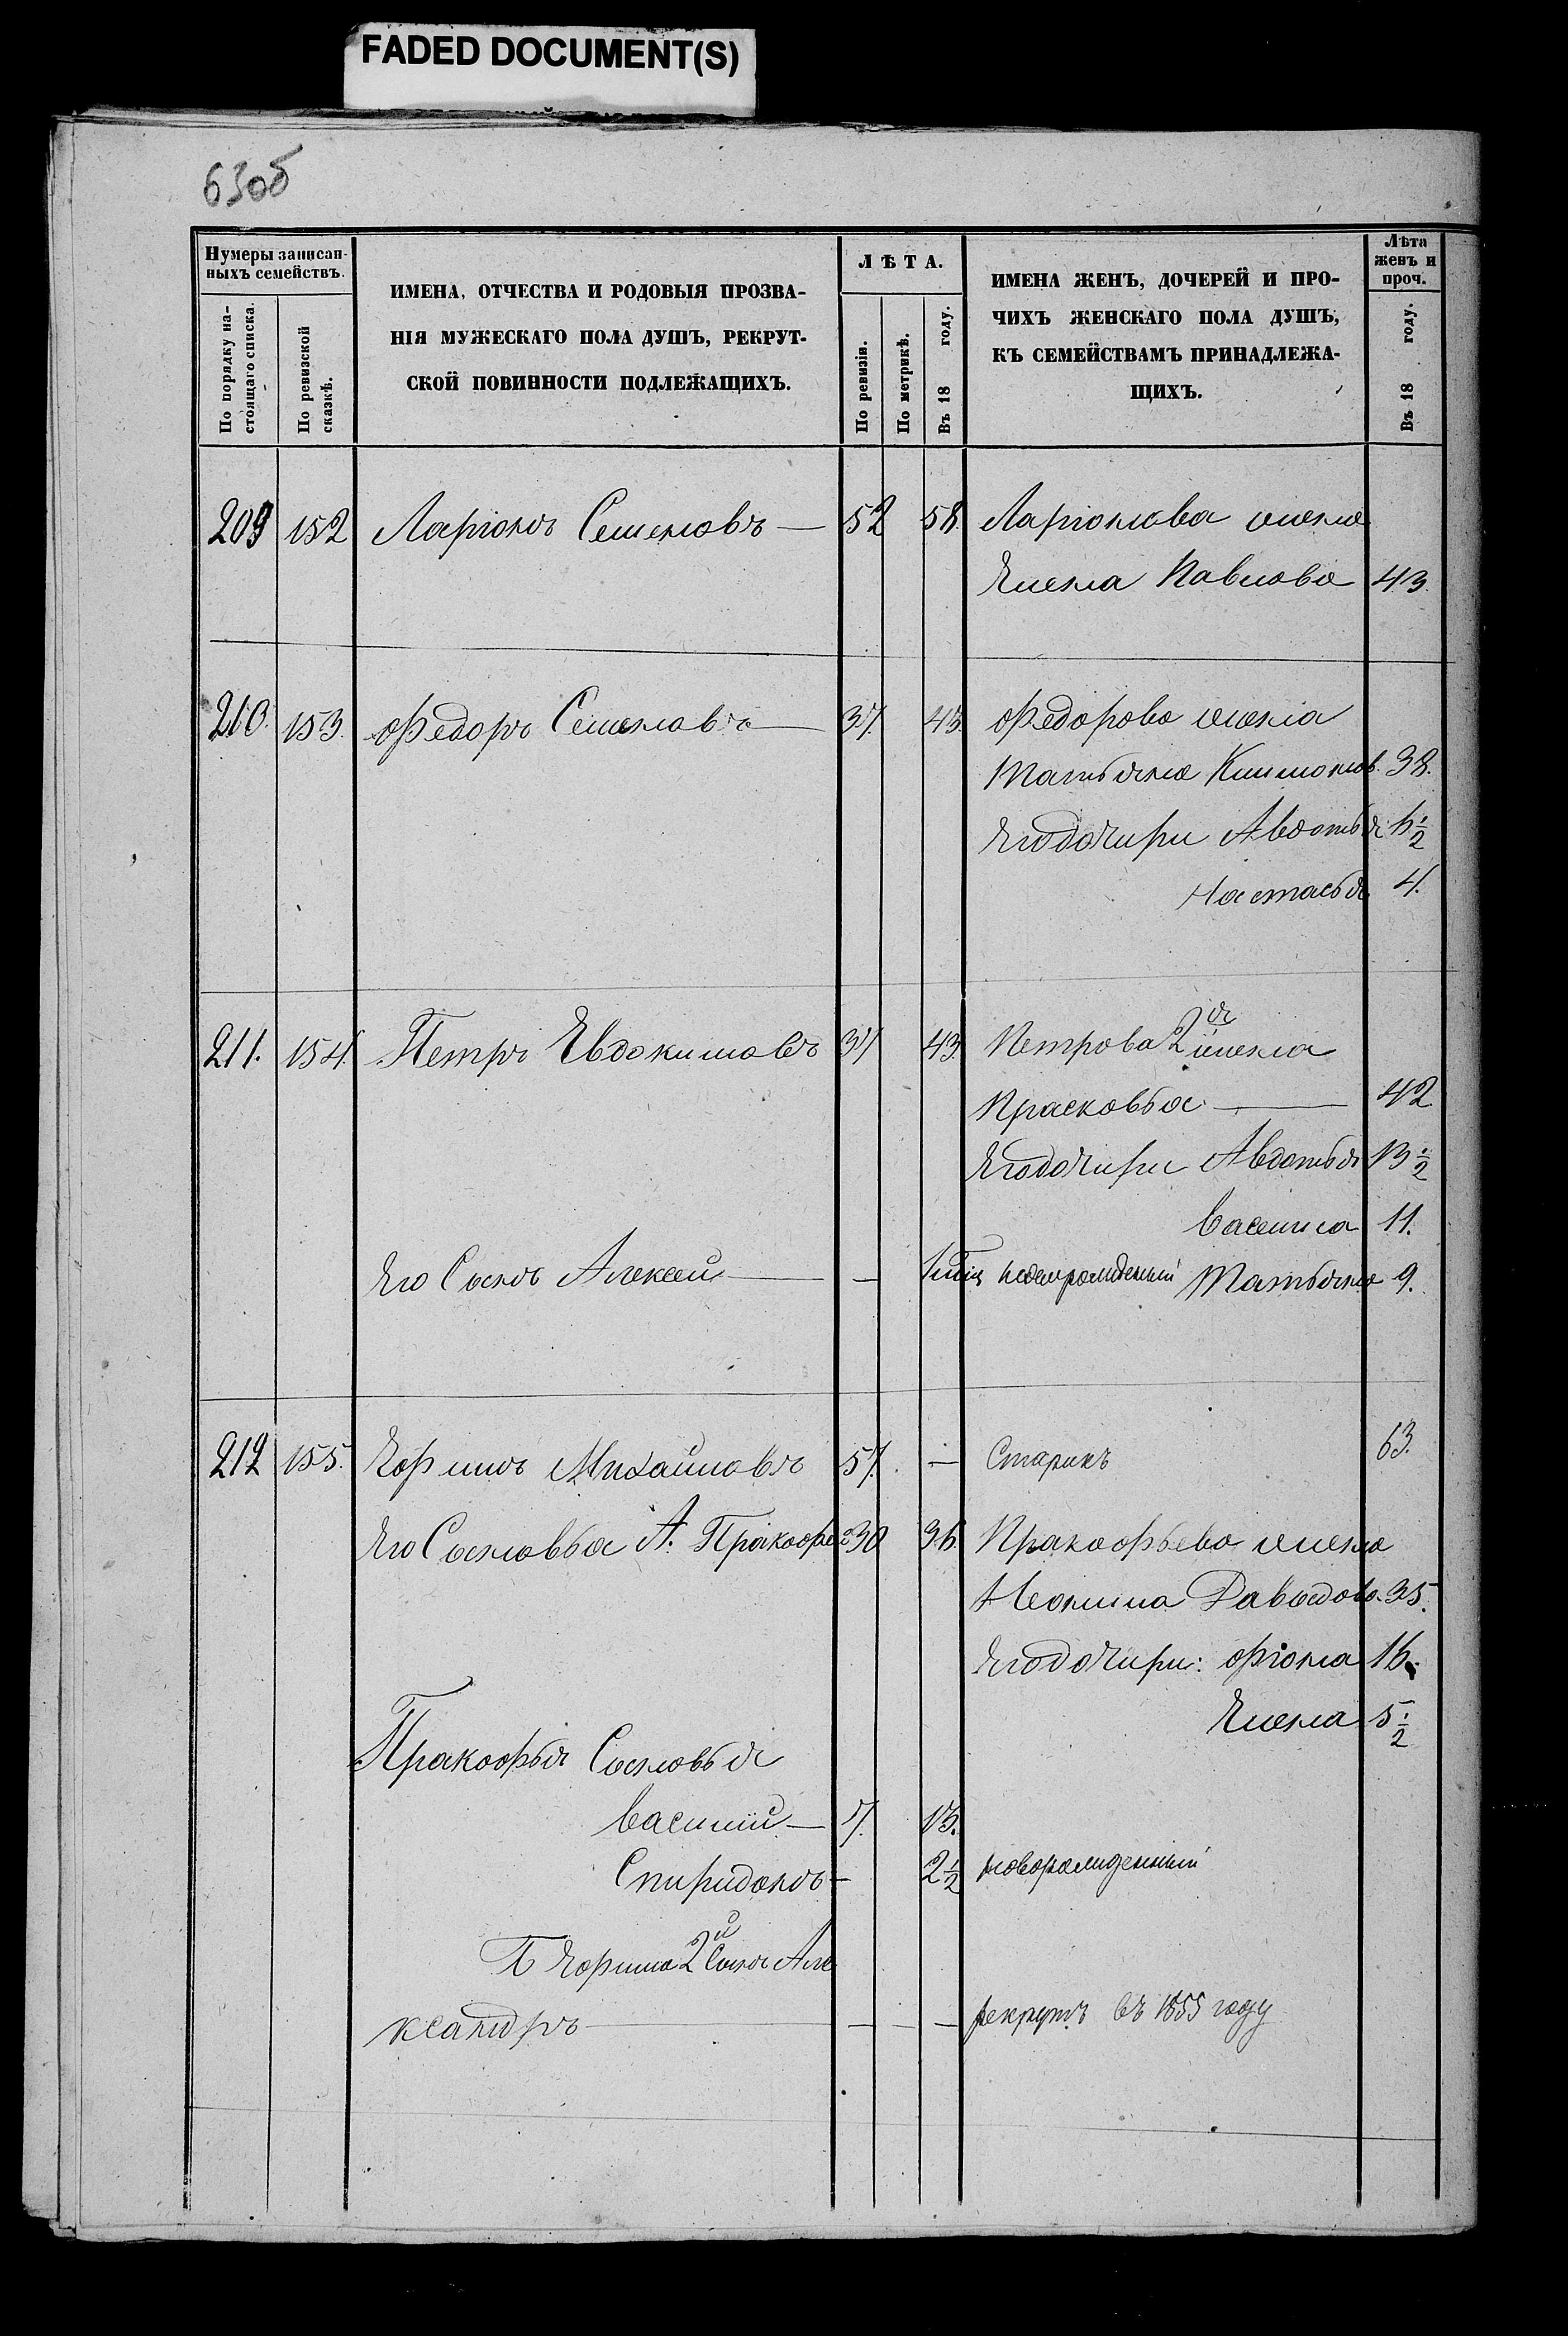 FADED DOCUMENT(S)
63об
Нумеры записан-
ныхъ семействъ.
По порядку на-
стоящаго списка.
По ревизской
сказкѣ.
ИМЕНА, ОТЧЕСТВА И РОДОВЫЯ ПРОЗВА-
НІЯ МУЖЕСКАГО ПОЛА ДУШЪ, РЕКРУТ-
СКОЙ ПОВИННОСТИ ПОДЛЕЖАЩИХЪ.
ЛѢТА.
По ревизіи.
По метрикѣ.
Въ 18 году.
ИМЕНА ЖЕНЪ, ДОЧЕРЕЙ И ПРО-
ЧИХЪ ЖЕНСКАГО ПОЛА ДУШЪ,
КЪ СЕМЕЙСТВАМЪ ПРИНАДЛЕЖА-
ЩИХЪ.
Лѣта
женъ и
проч.
Въ 18 году.
209 152 Ларіонъ Семеновъ — 52 58. Ларіонова жена
Елена Павлова 43.
210. 153. Федоръ Семеновъ — 37. 43. Федорова жена
Татьяна Климонов. 38.
Его дочири Авдотья 6 1/2
Настасья 4.
211. 154. Петръ Евдокимовъ 37 43 Петрова 2я жена
Прасковья — 42
Его дочири Авдотья 13 1/2
Василиса 11.
Его Сынъ Алексей — — Татьяна 9.
212 155. Ефимъ Михайловъ 57. — Старикъ 63.
Его Сыновья А. Пракофей 30 36. Пракофьева жена
Неонила Давыдова. 35.
Его дочири: Фіона 16.
Елена 5 1/2
Пракофья Сыновья
Василий — 7. 13.
Спиридонъ — 2 1/2 новорожденный
Б Ефима 2й Сынъ Але
ксандръ — — — рекрутъ въ 1855 году